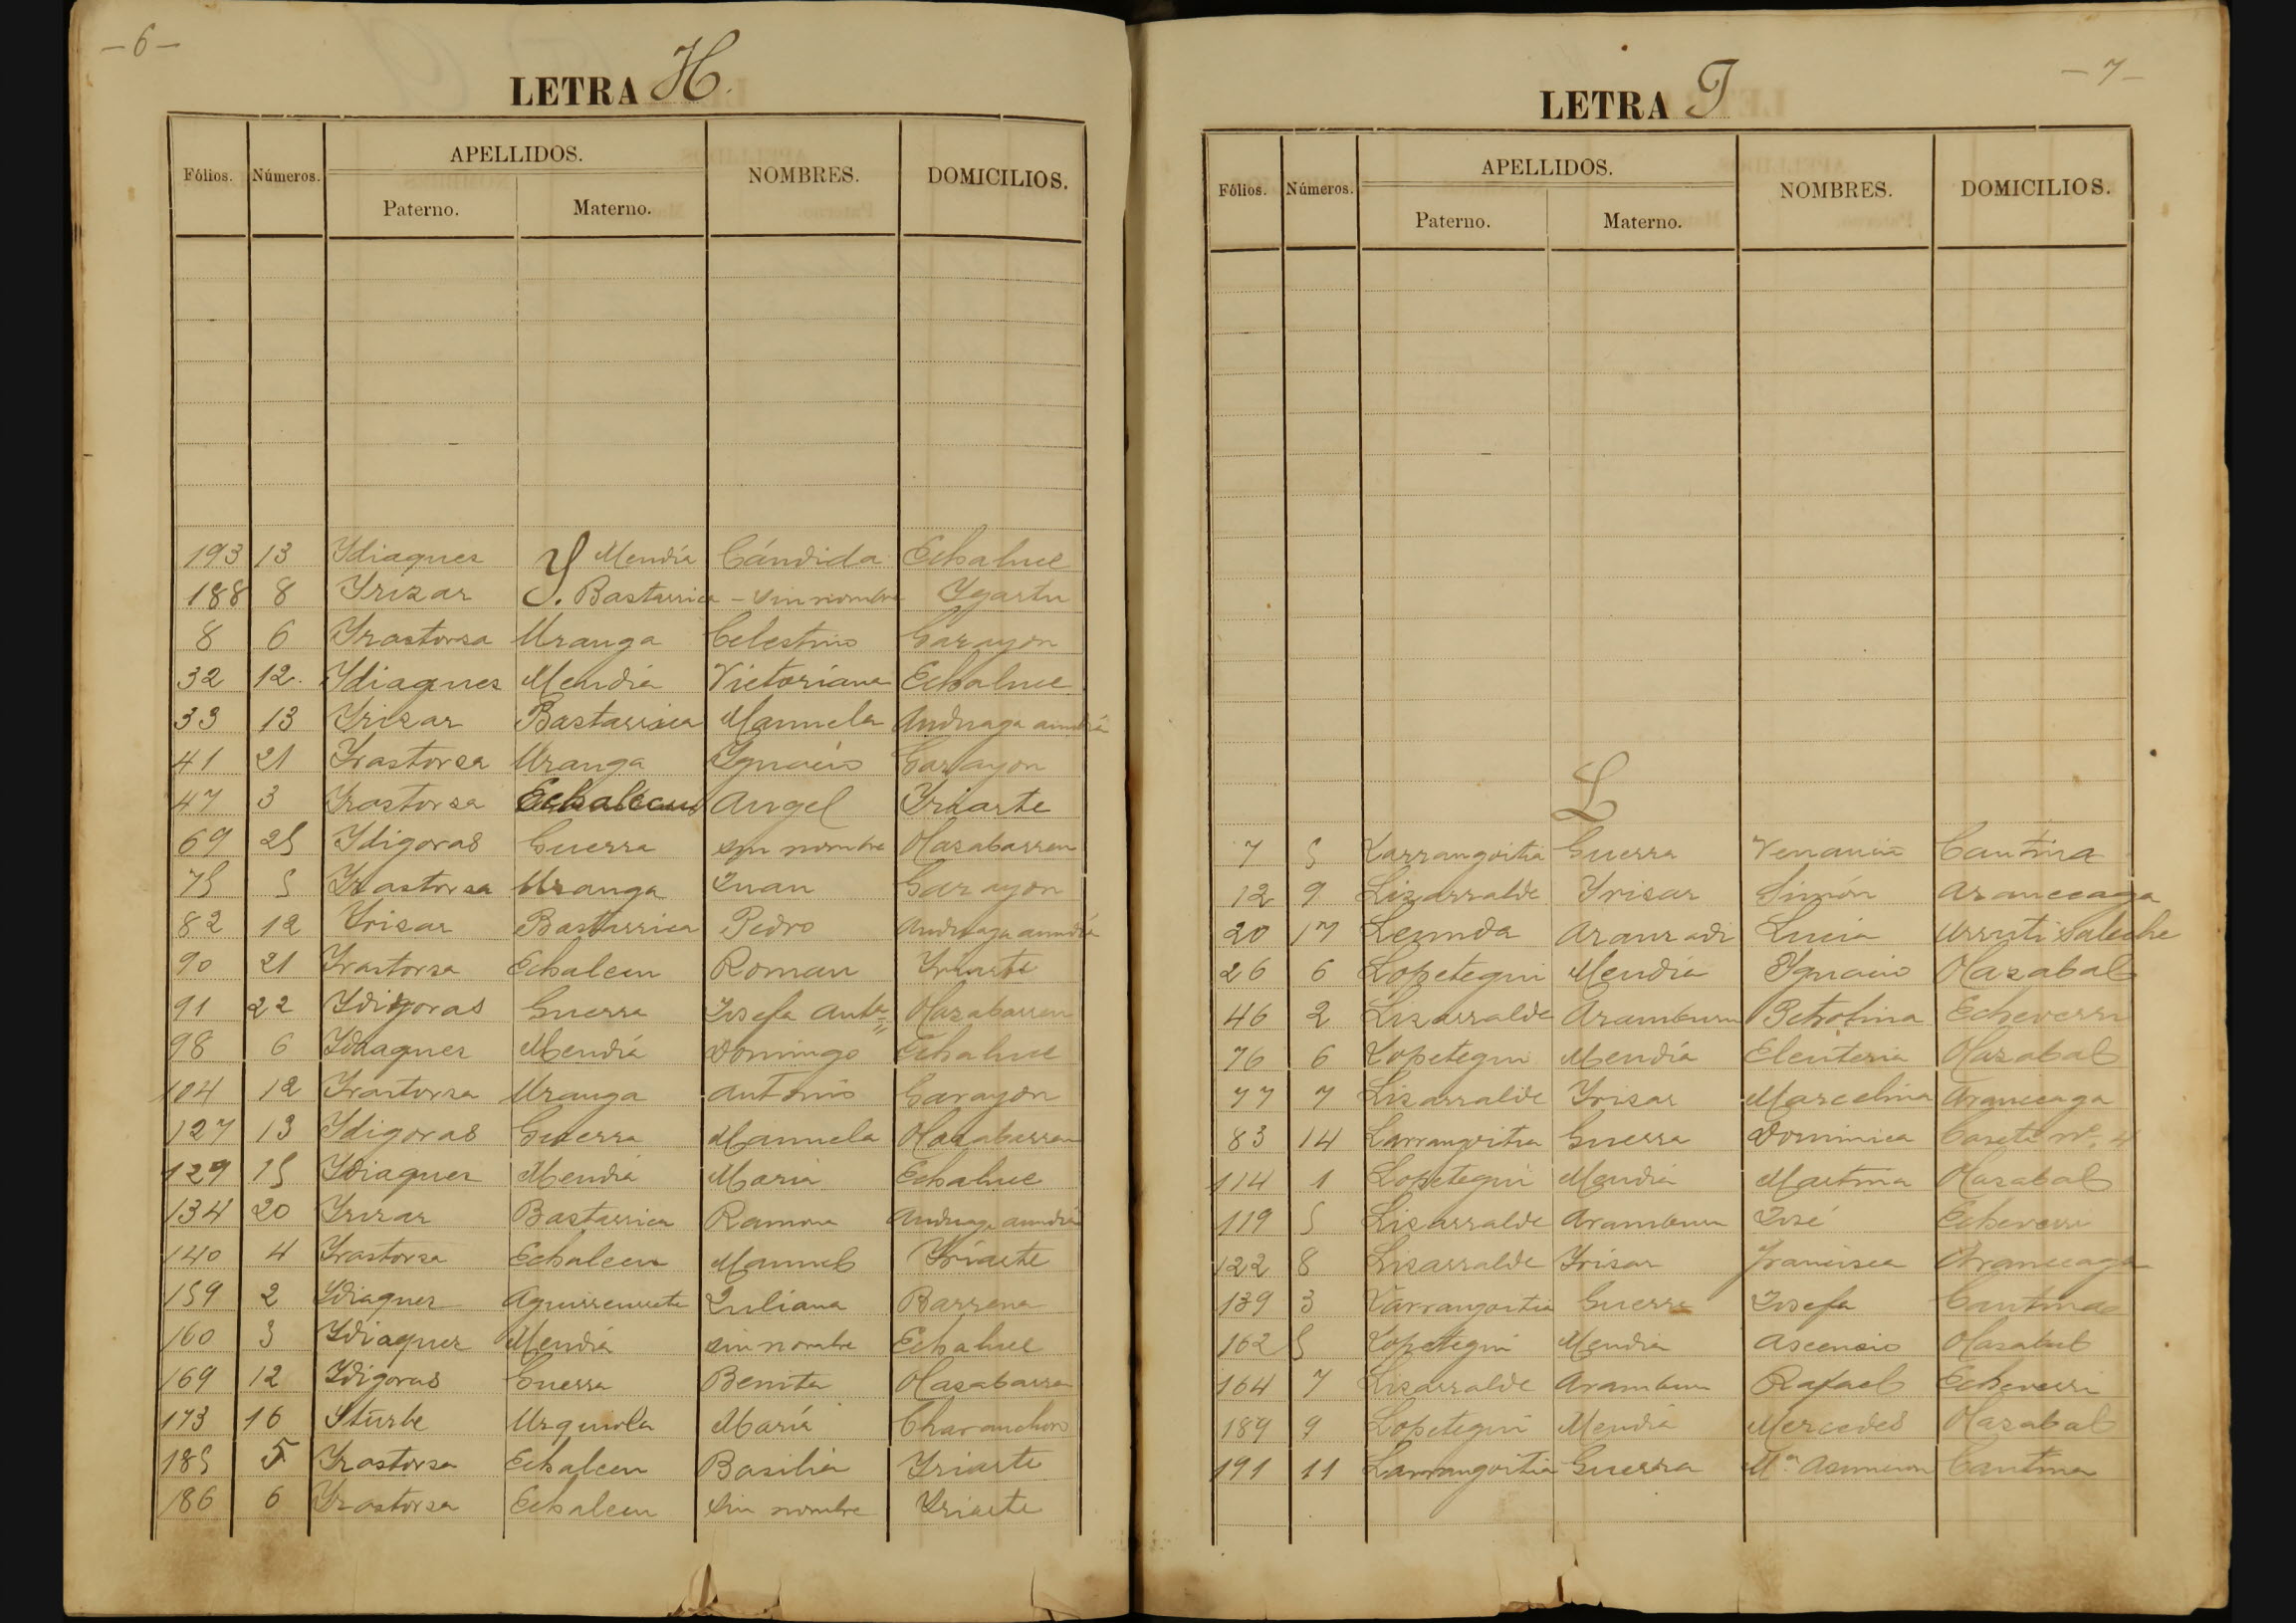 – 6 –
LETRA H.
Fólios. Números. APELLIDOS. NOMBRES. DOMICILIOS.
Paterno. Materno.
Y
193 13 Ydiaques Mendía Cándida Echaluce
188 8 Yrizar Y. Bastarrica – sin nombre Ygartu
8 6 Yrastorsa Uranga Celestino Garayon
32 12. Ydiaques Mendia Victoriana Echaluce
33 13 Yrisar Bastarrica Manuela Anduaga aundía
41 21 Yrastorza Uranga Ygnacio Garayon
47 3 Yrastorsa Echalecu Angel Yriarte
69 25 Ydigoras Guerra sin nombre Olazabarren
75 5 Yrastorsa Uranga Juan Garayon
82 12 Yrisar Bastarrica Pedro Anduaga aundía
90 21 Yrastorsa Echalecu Roman Yriarte
91 22 Ydigoras Guerra Josefa Anta Olazabarren
98 6 Ydiaques Mendia Domingo Echaluce
104 12 Yrastorza Uranga Antonio Garayon
127 13 Ydigoras Guerra Manuela Olazabarren
129 15 Ydiaquer Mendia Maria Echaluce
134 20 Yrizar Bastarrica Ramona Anduaga aundia
140 4 Yrastorza Echalecu Manuel Yriarte
159 2 Ydiaques Aguirreurreta Juliana Barrena
160 3 Ydiaquez Mendia sin nombre Echaluce
169 12 Ydigoras Guerra Benita Olazabarren
173 16 Yturbe Urquiola María Charanchoro
185 5 Yrastorsa Echalecu Basilia Yriarte
186 6 Yrastorsa Echalecu sin nombre Yriarte
– 7 –
LETRA I
Fólios. Números. APELLIDOS. NOMBRES. DOMICILIOS.
Paterno. Materno.
L
7 5 Larrangoitia Guerra Venancia Cantina
12 9 Lizarralde Yrisar Simón Aranceaga
20 17 Leunda Aranzadi Lucia Urruti Saleche
26 6 Lopetegui Mendia Ygnacio Olazabal
46 2 Lizarralde Aramburu Petrolina Echeverri
76 6 Lopetegui Mendía Eleuteria Olazabal
77 7 Lizarralde Yrisar Marcelina Aranceaga
83 14 Larrangoitia Guerra Dominica Caseta nº 4
114 1 Lopetegui Mendia Martina Olazabal
119 5 Lizarralde Aramburu José Echeverri
122 8 Lizarralde Yrisar Francisca Aranceaga
139 3 Larrangoitia Guerra Josefa Cantina
162 5 Lopetegui Mendia Ascensio Olazabal
164 7 Lizarralde Aramburu Rafael Echeverri
189 9 Lopetegui Mendia Mercedes Olazabal
191 11 Larrangoitia Guerra Mª Asuncion Cantina